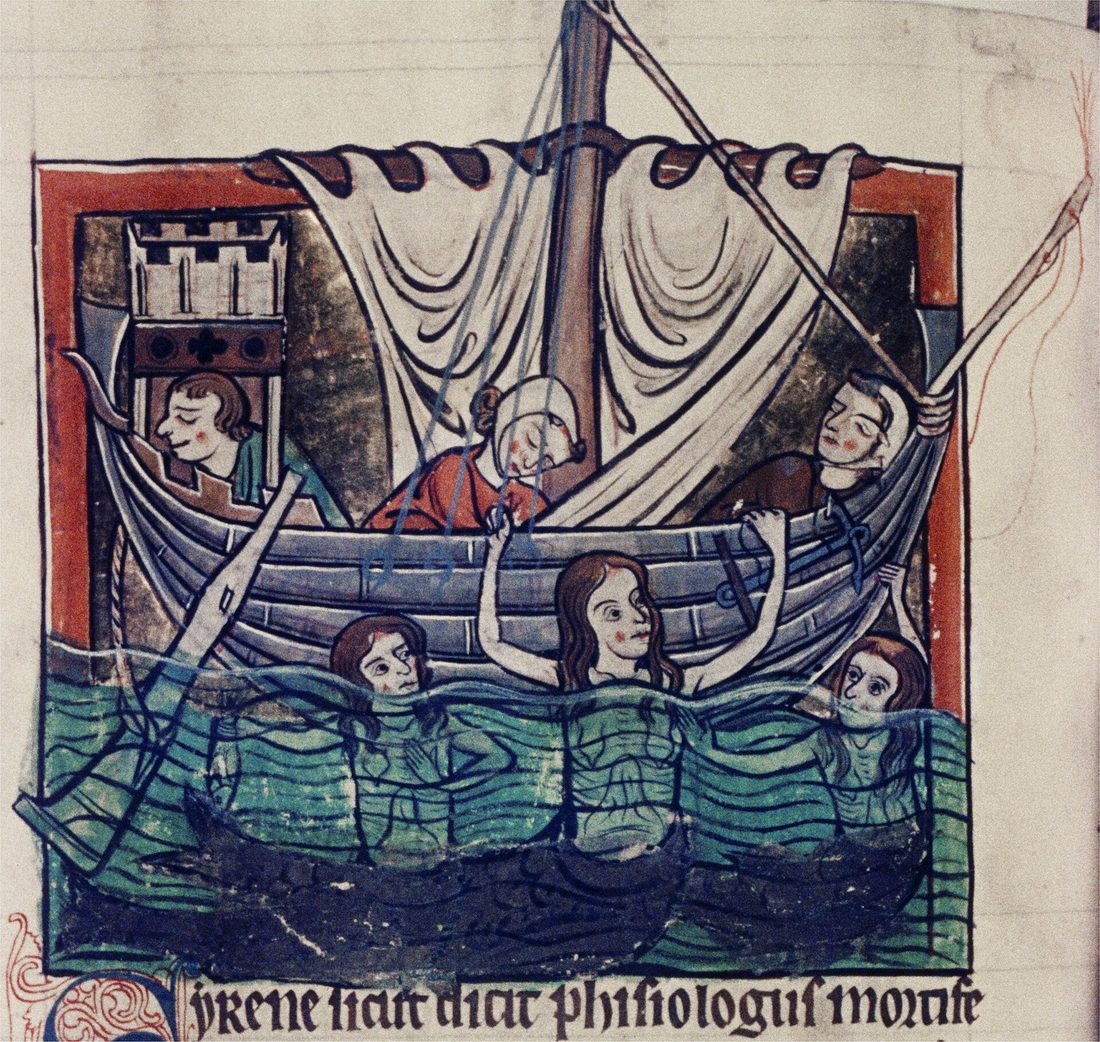 Syrene sicut dicit phisiologus mortife